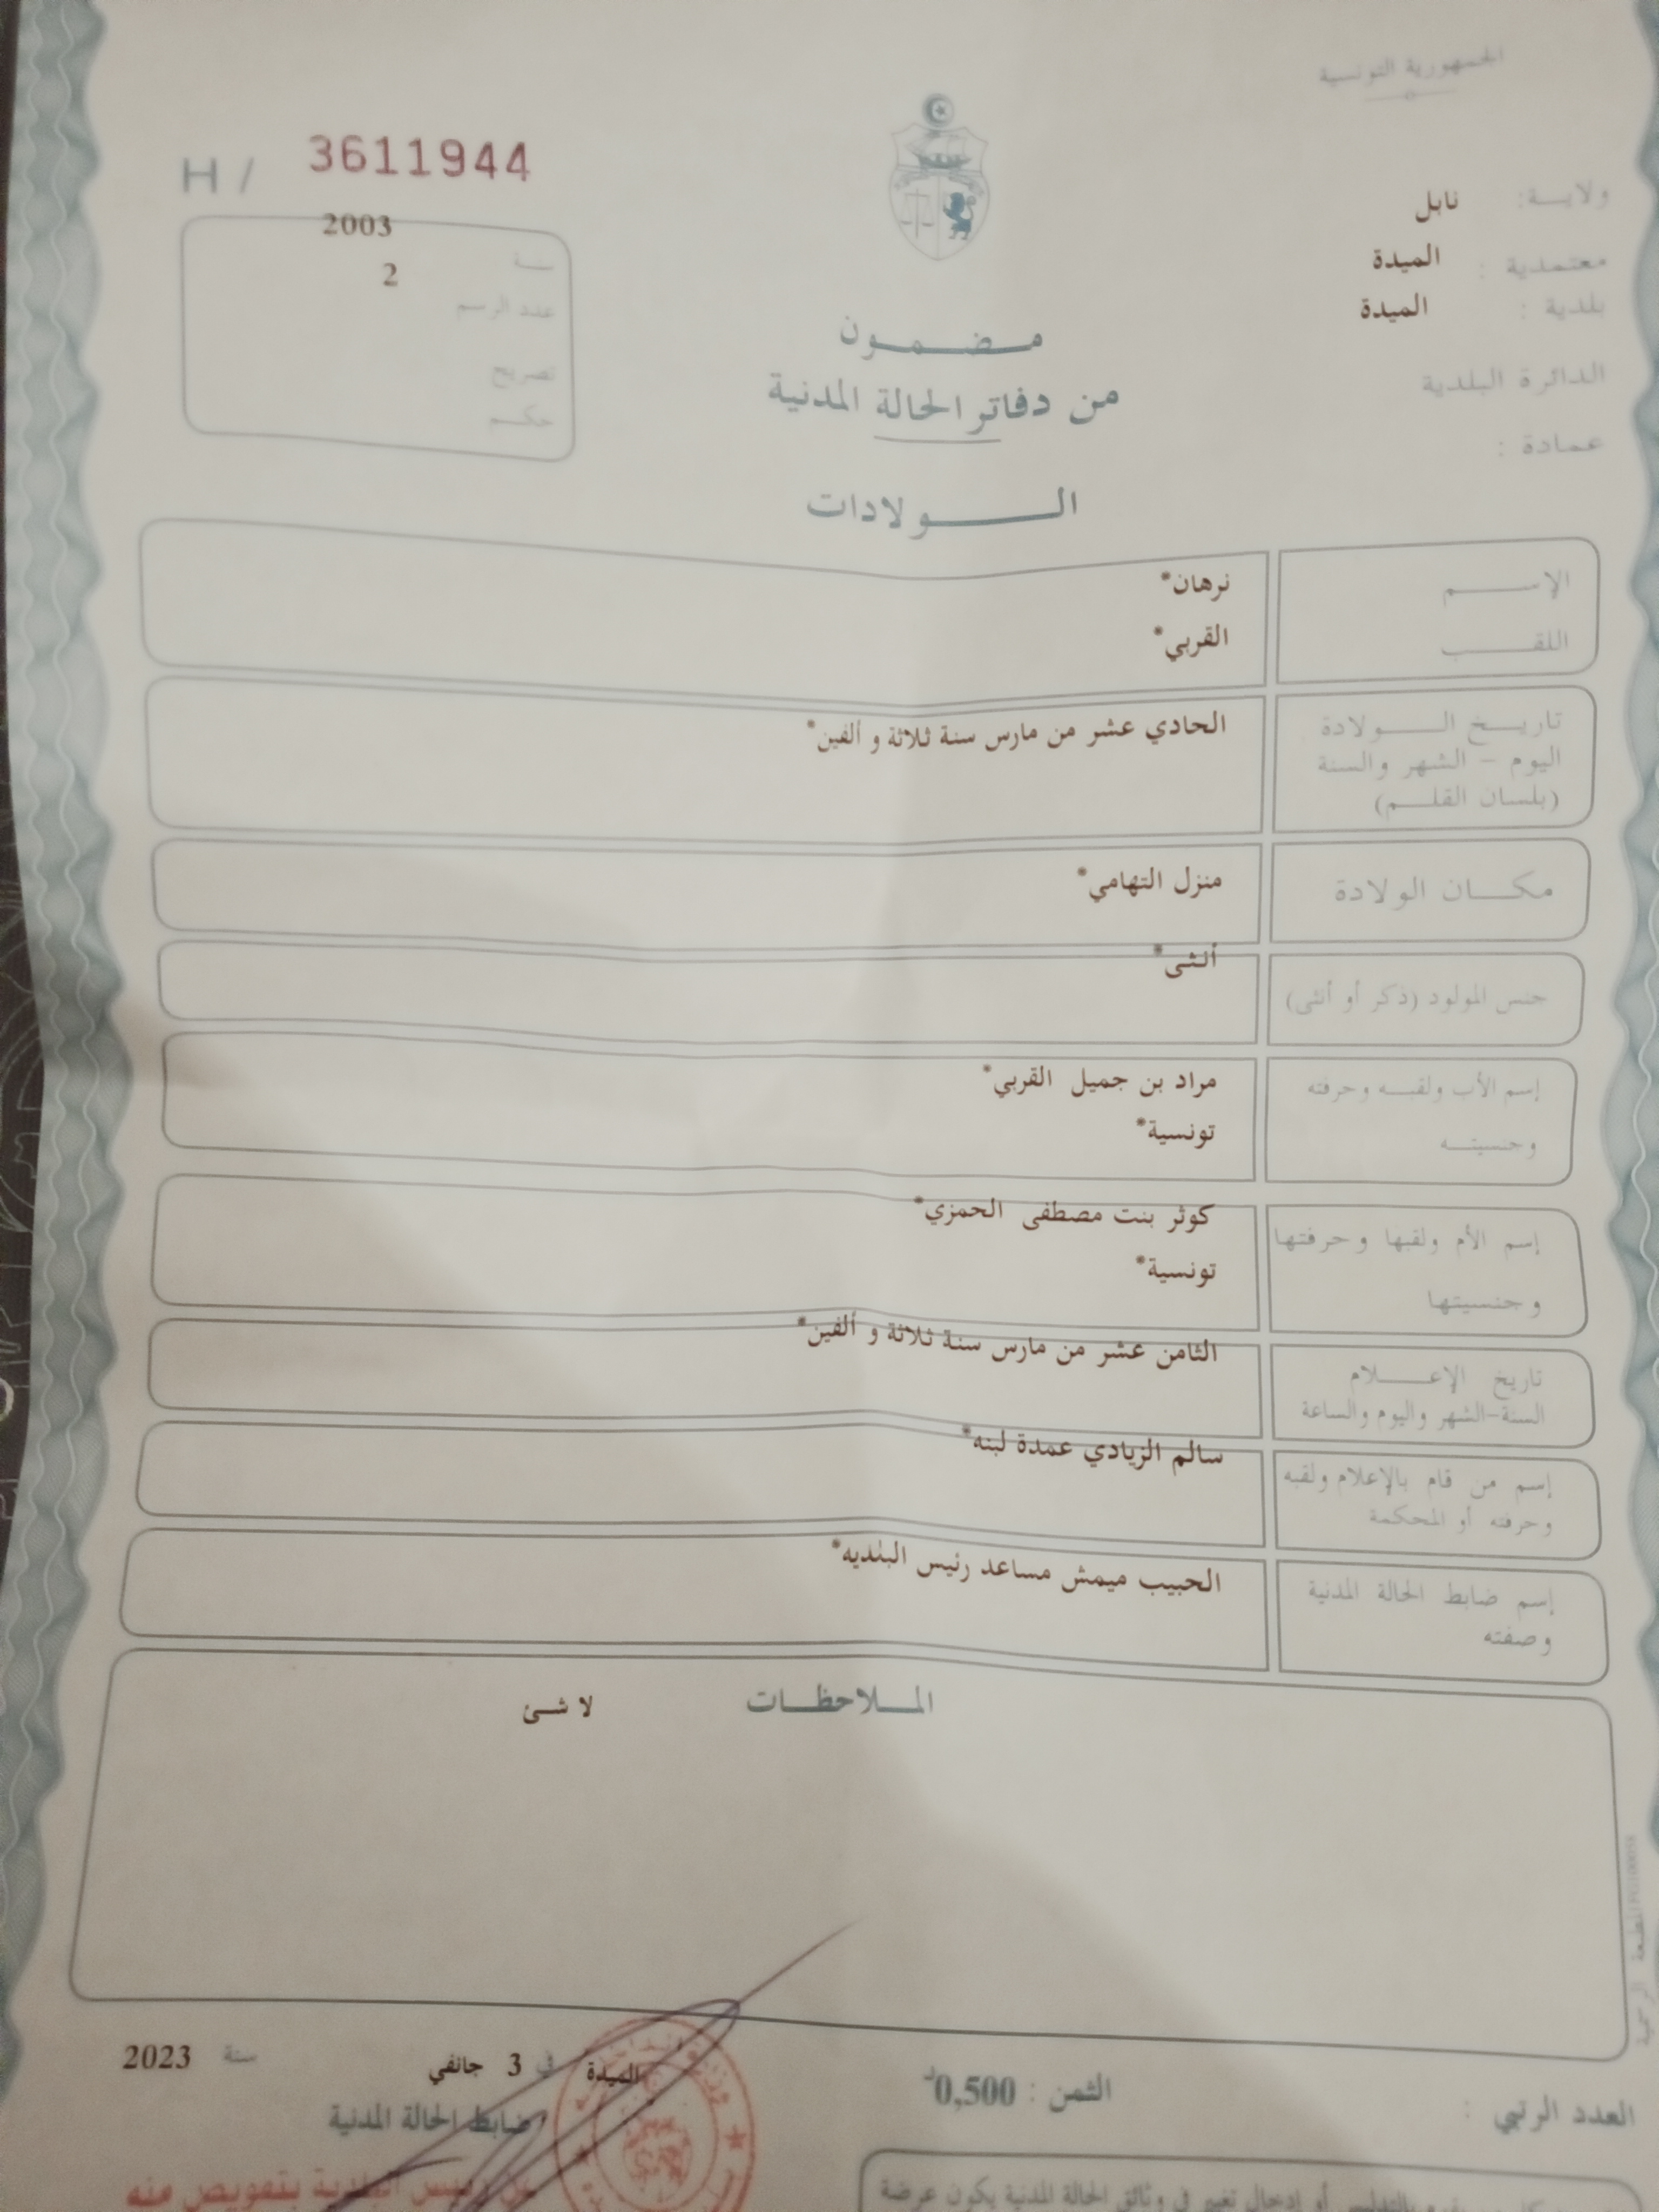 الجمهورية التونسية
H / 3611944
ولايــة: نابل
معتمدية : الميدة
بلدية : الميدة
الدائرة البلدية
عمادة :
سنة 2003
عدد الرسم 2
تصريح
حكم
مضمون
من دفاتر الحالة المدنية
الولادات
الإسم نرهان*
اللقب القربي*
تاريخ الولادة
اليوم - الشهر والسنة
(بلسان القلم)
الحادي عشر من مارس سنة ثلاثة و ألفين*
مكان الولادة منزل التهامي*
جنس المولود (ذكر أو أنثى) أنثى*
إسم الأب ولقبه وحرفته مراد بن جميل القربي*
وجنسيته تونسية*
إسم الأم ولقبها وحرفتها كوثر بنت مصطفى الحمزي*
وجنسيتها تونسية*
تاريخ الإعلام
السنة-الشهر واليوم والساعة
الثامن عشر من مارس سنة ثلاثة و ألفين*
إسم من قام بالإعلام ولقبه
وحرفته أو المحكمة
سالم الزيادي عمدة لبنه*
إسم ضابط الحالة المدنية
وصفته
الحبيب ميمش مساعد رئيس البلديه*
الملاحظات لا شئ
الميدة في 3 جانفي سنة 2023
ضابط الحالة المدنية
عن رئيس البلدية بتفويض منه
الثمن : 0,500د
العدد الرتبي :
بالتدليس أو إدخال تغيير في وثائق الحالة المدنية يكون عرضة
المطبعة الرسمية